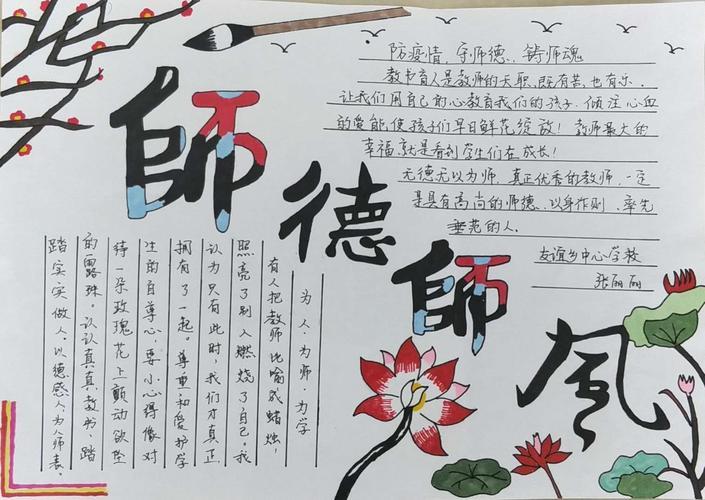 師德師風
防疫情、守师德、铸师魂
教书育人是教师的天职,既有苦,也有乐,
让我们用自己的心教育我们的孩子,倾注心血
的爱能使孩子们早日鲜花绽放!教师最大的
幸福就是看到学生们在成长!
无德无以为师,真正优秀的教师,一定
是具有高尚的师德,以身作则、率先
垂范的人。
友谊乡中心学校
张丽丽
为人·为师·为学
有人把教师比喻成蜡烛,
照亮了别人燃烧了自己。我
认为只有此时,我们才真正
拥有了一起。尊重和爱护学
生的自尊心,要小心得像对
待一朵玫瑰花上颤动欲坠
的露珠。认认真真教书、踏
踏实实做人。以德感人为人师表。